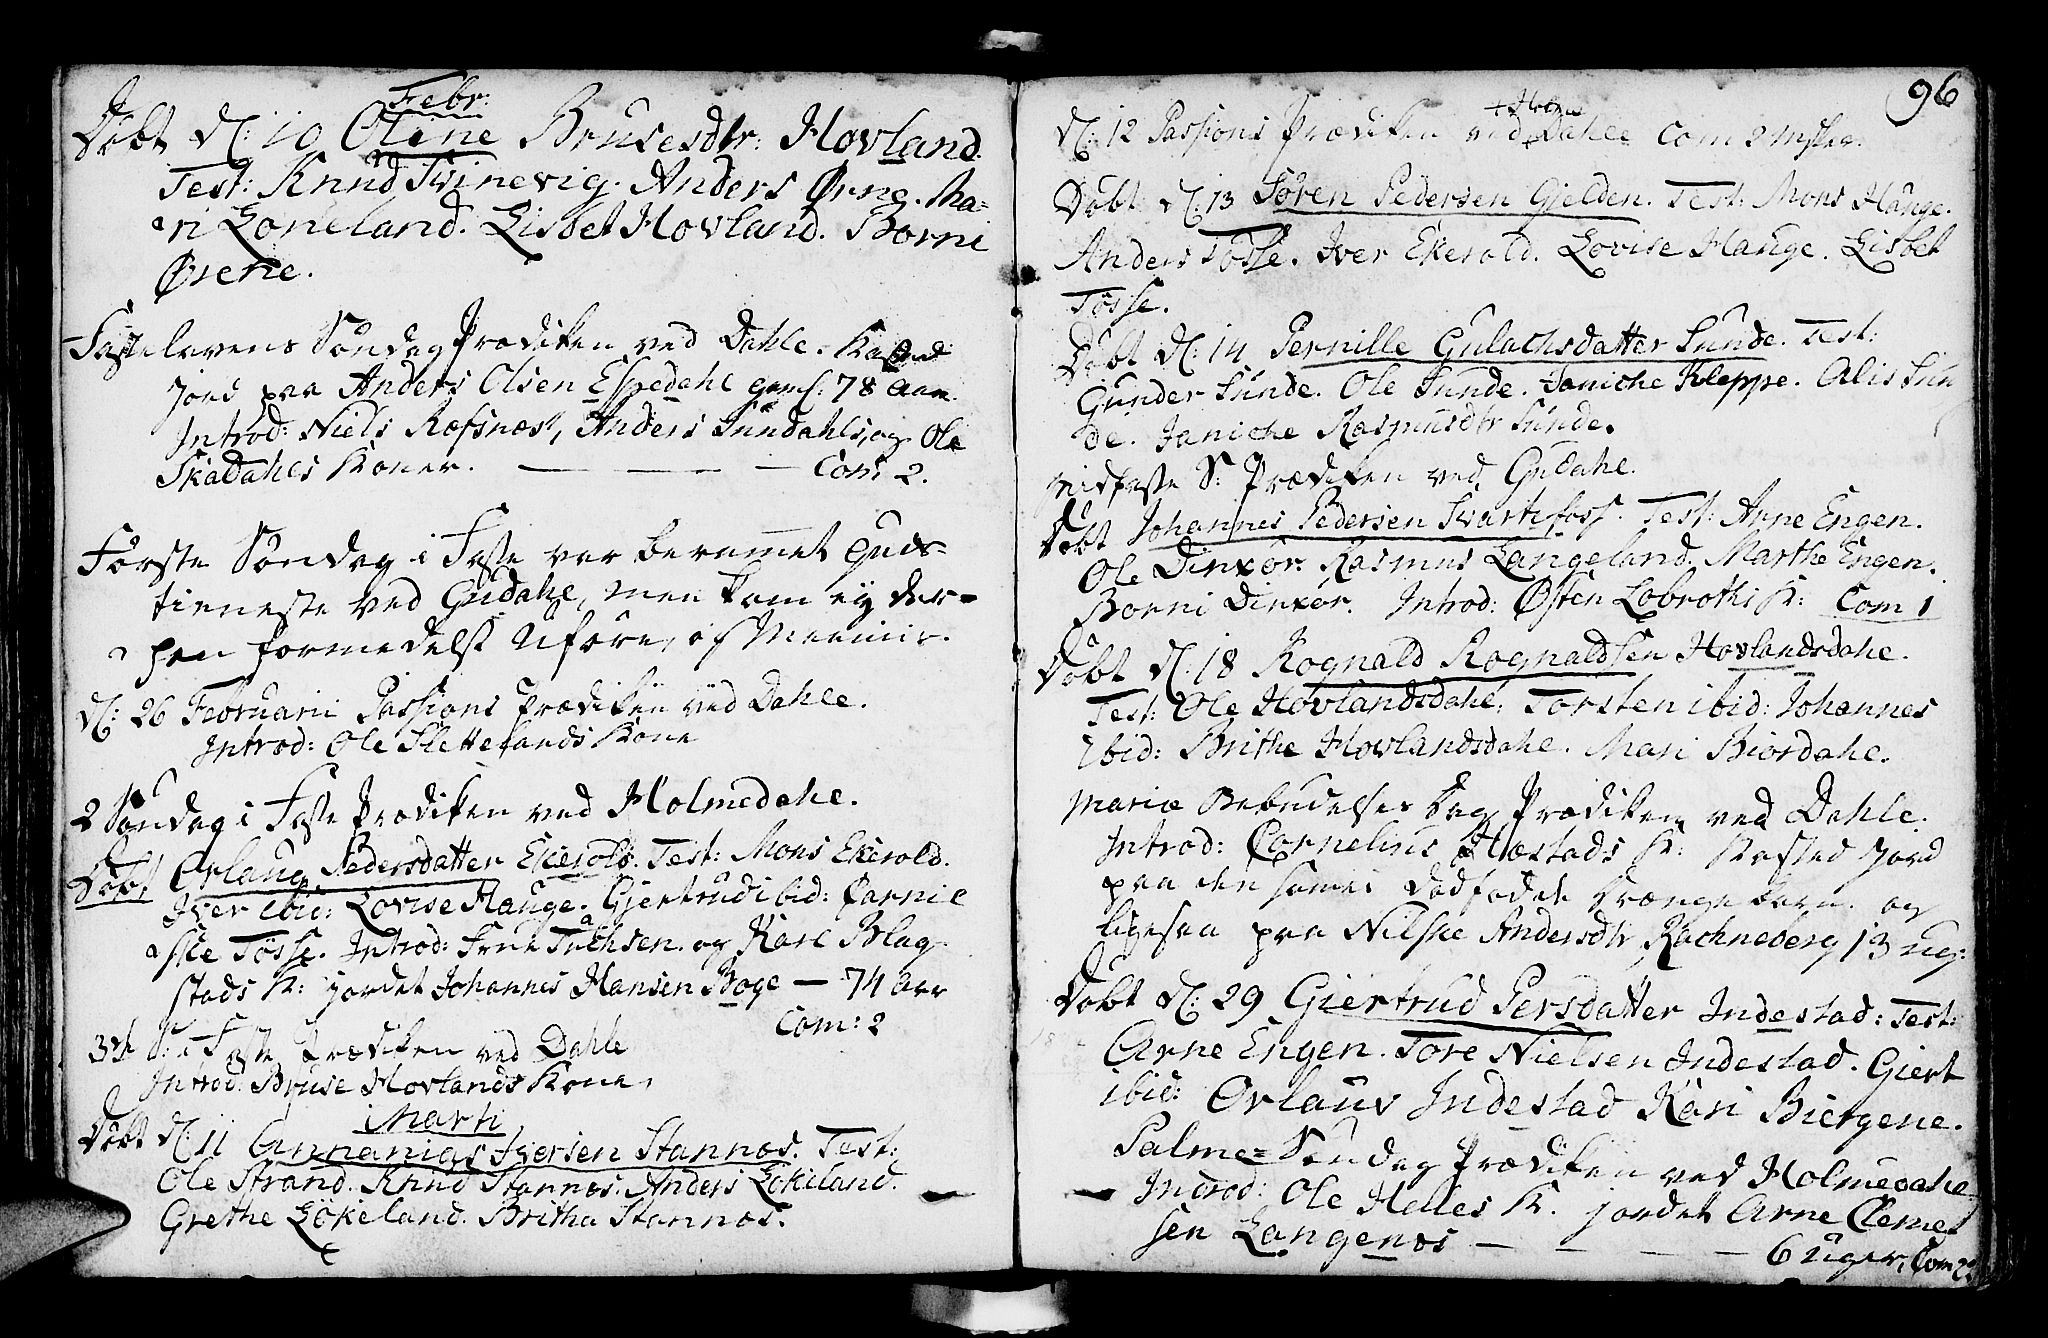 Febr:
Döbt d: 10 Oline Brusesdtr: Hovland.
Test: Knud Svinevig. Anders Ørne. Ma=
ri Loneland. Lisbet Hovland. Borni
Ørene.
Fastelavens Söndag Prædiken ved Dahle. Kasted
Jord paa Anders Olsen Espedahl gaml: 78 Aar.
Introd: Niels Refsnæs, Anders Sundahls, og Ole
Skadahls Koner. — — — Com: 2.
Förste Söndag i Faste var beramet Guds=
tieneste ved Gudahl, men kom ey der=
hen formedelst Uföre, og Meenis.
d: 26 Februarii Passions Prædiken ved Dahle.
Introd: Ole Slettelands Kone
2 Söndag i Faste Prædiken ved Holmedahl.
Döbt Orlaug Pedersdatter Ekerold. Test: Mons Ekerold.
Iver ibid: Lovise Hauge. Giertrud ibid: Carnie
Tösse. Introd: Frue Tuchsen. og Karl Blag
stads K: jordet Johannes Hansen Boge — 74 Aar
Com: 2
3die S: i Faste Prædiken ved Dahle
Introd: Bruse Hovlands Kone.
Marti
Döbt d: 11 Annanias Iversen Stannæs. Test:
Ole Strand. Knud Stannæs. Anders Lökeland.
Grethe Lökeland. Britha Stannæs.
96
d: 12 Passions Prædiken ved Dahle Com 2 msker.
Döbt d: 13 Sören Pedersen Gjelden. Test: Mons Hauge.
Anders Tösse. Iver Ekerold. Lovise Hauge. Lisbet
Tösse.
Döbt d: 14 Pernille Gulachsdatter Sunde. Test:
Gunder Sunde. Ole Sunde. Janiche Kleppe. Alis Sun
de. Janiche Rasmusdtr Sunde.
Midfaste S: Prædiken ved Gudahl.
Döbt Johannes Pedersen Svartefoss. Test: Arne Engen.
Ole Dinxör. Rasmus Langeland. Marthe Engen.
Borni Dinxör. Introd: Østen Lobroths K: Com 1
Döbt d: 18 Rognald Rognaldsen Hovlandsdahl.
Test: Ole Hovlandsdahl. Torsten ibid: Johannes
ibid: Brithe Hovlandsdahl. Mari Biordahl.
Mariæ Bebudelses Dag Prædiken ved Dahle.
Introd: Cornelius Hæstads K: Kasted Jord
paa den sammes dödfödt Drænge barn. og
ligesaa paa Nilske Andersdtr Rachneberg 13 Ug:
Döbt d: 29 Giertrud Persdatter Indestad: Test:
Arne Engen. Tore Nielsen Indestad. Giert
ibid: Orlauv Indestad Kari Biergene.
Palme=Söndag Prædiken ved Holmedahl
Introd: Ole Helles K. jordet Arne Clemet
sen Langenæs — — — — 6 Uger. Com 2.